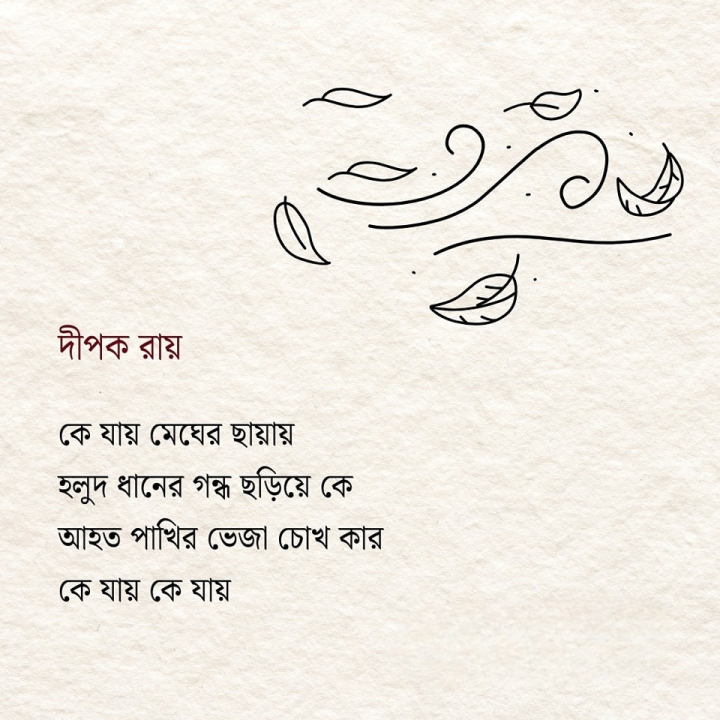 দীপক রায়
কে যায় মেঘের ছায়ায়
হলুদ ধানের গন্ধ ছড়িয়ে কে
আহত পাখির ভেজা চোখ কার
কে যায় কে যায়